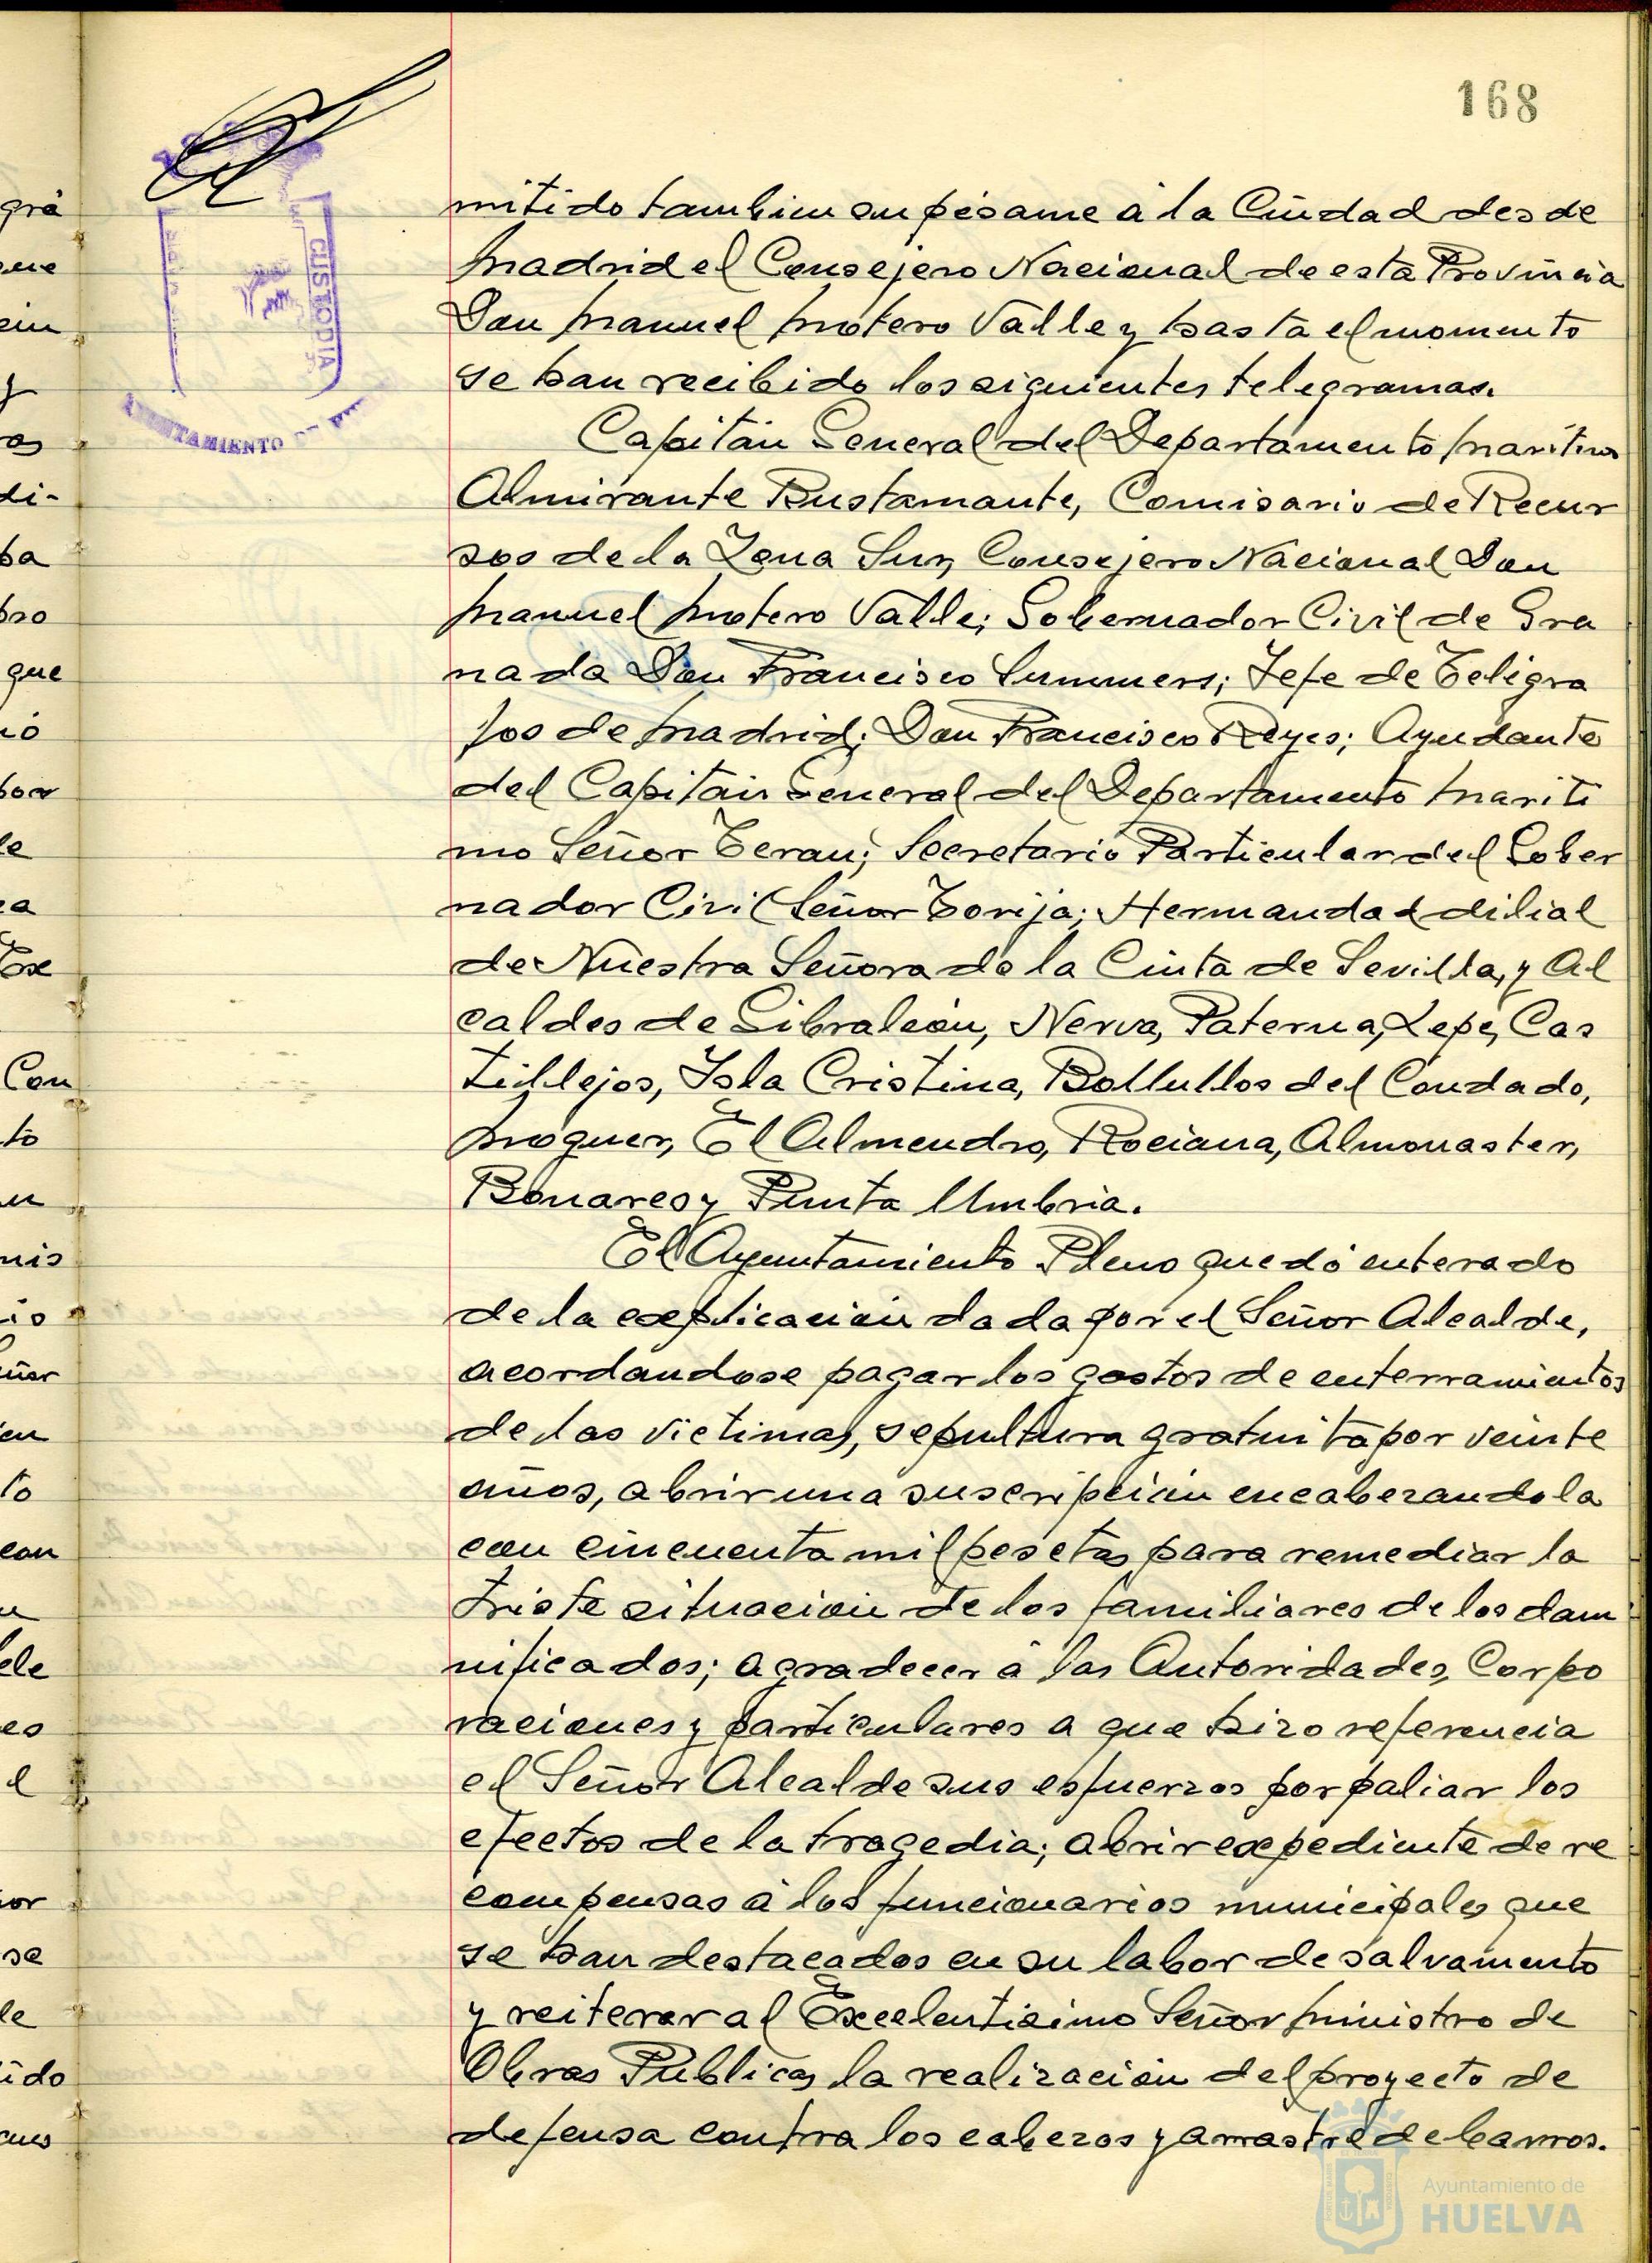 168
mitido tambien su pésame á la Ciudad desde
Madrid el Consejero Nacional de esta Provincia
Don Manuel Motero Valle y hasta el momento
se han recibido los siguientes telegramas.
Capitán General del Departamento Maritimo
Almirante Bustamante, Comisario de Recur
sos de la Zona Sur, Consejero Nacional Don
Manuel Motero Valle; Gobernador Civil de Gra
nada Don Francisco Summers; Jefe de Telegra
fos de Madrid; Don Francisco Reyes; Ayudante
del Capitán General del Departamento Mariti
mo Señor Teran; Secretario Particular del Gober
nador Civil Señor Torija; Hermandad dilial
de Nuestra Señora de la Cinta de Sevilla, y Al
caldes de Gibraleón, Nerva, Paterna, Lepe, Cas
tillejos, Isla Cristina, Bollullos del Condado,
Moguer, El Almendro, Rociana, Almonaster,
Bonares y Punta Umbria.
El Ayuntamiento Pleno quedó enterado
de la explicación dada por el Señor Alcalde,
acordándose pagar los gastos de enterramientos
de las victimas, sepultura gratuita por veinte
años, abrir una suscripción encabezandola
con cincuenta mil pesetas para remediar la
triste situación de los familiares de los dam
nificados; agradecer á las Autoridades, Corpo
raciones y particulares a que hizo referencia
el Señor Alcalde sus esfuerzos por paliar los
efectos de la tragedia; abrir expediente de re
compensas á los funcionarios municipales que
se han destacados en su labor de salvamento
y reiterar al Excelentisimo Señor Ministro de
Obras Públicas la realización del proyecto de
defensa contra los cabezos y arrastre de barros.
CUSTODIA
Ayuntamiento de
HUELVA